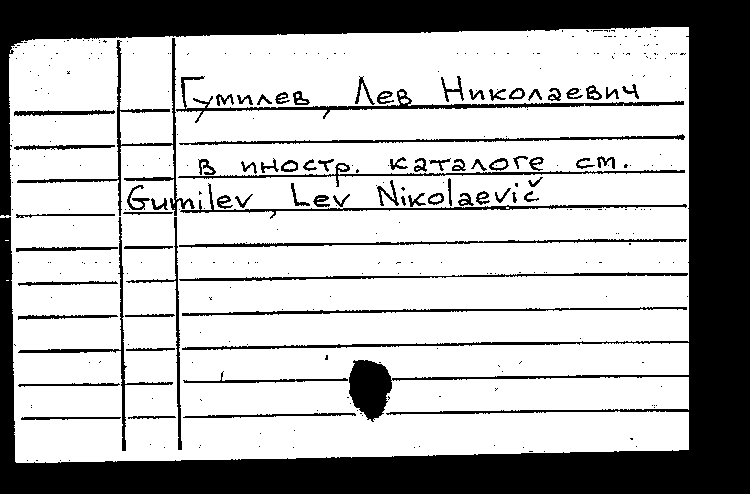 Гумилев, Лев Николаевич
в иностр. каталоге см.
Gumilev, Lev Nikolaevič